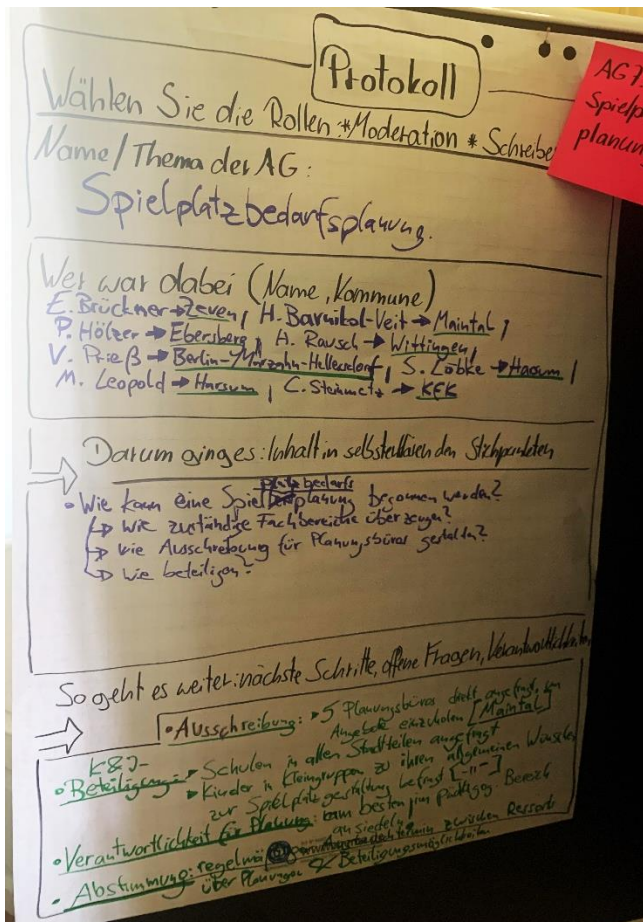 Protokoll
AG 7
Spielp
planung
Wählen Sie die Rollen: *Moderation * Schreibe
Name/Thema der AG:
Spielplatzbedarfsplanung.
Wer war dabei (Name, Kommune)
E. Brückner → Zeven, H. Barnikol-Veit → Maintal,
P. Hölzer → Ebersberg, A. Rausch → Wittingen,
V. Prieß → Berlin-Marzahn-Hellersdorf, S. Löbke → Harsum,
M. Leopold → Harsum, C. Steinmetz → KFK
Darum ging es: Inhalt in selbsterklärenden Stichpunkten
platzbedarfs
• Wie kann eine Spiel planung begonnen werden?
↳ Wie zuständige Fachbereiche überzeugen?
↳ wie Ausschreibung für Planungsbüros gestalten?
↳ wie beteiligen?
So geht es weiter: nächste Schritte, offene Fragen, Verantwortlichkeiten
• Ausschreibung: → 5 Planungsbüros direkt angefragt, um
Angebote einzuholen [Maintal]
K&J-
• Beteiligung: → Schulen in allen Stadtteilen angefragt
→ Kinder in Kleingruppen zu ihren allgemeinen Wünschen
zur Spielplatzgestaltung befragt [-"-]
• Verantwortlichkeit für Planung: am besten im pädagog. Bereich
ansiedeln
• Abstimmung: regelmä zwischen Ressorts
über Planungen & Beteiligungsmöglichkeiten